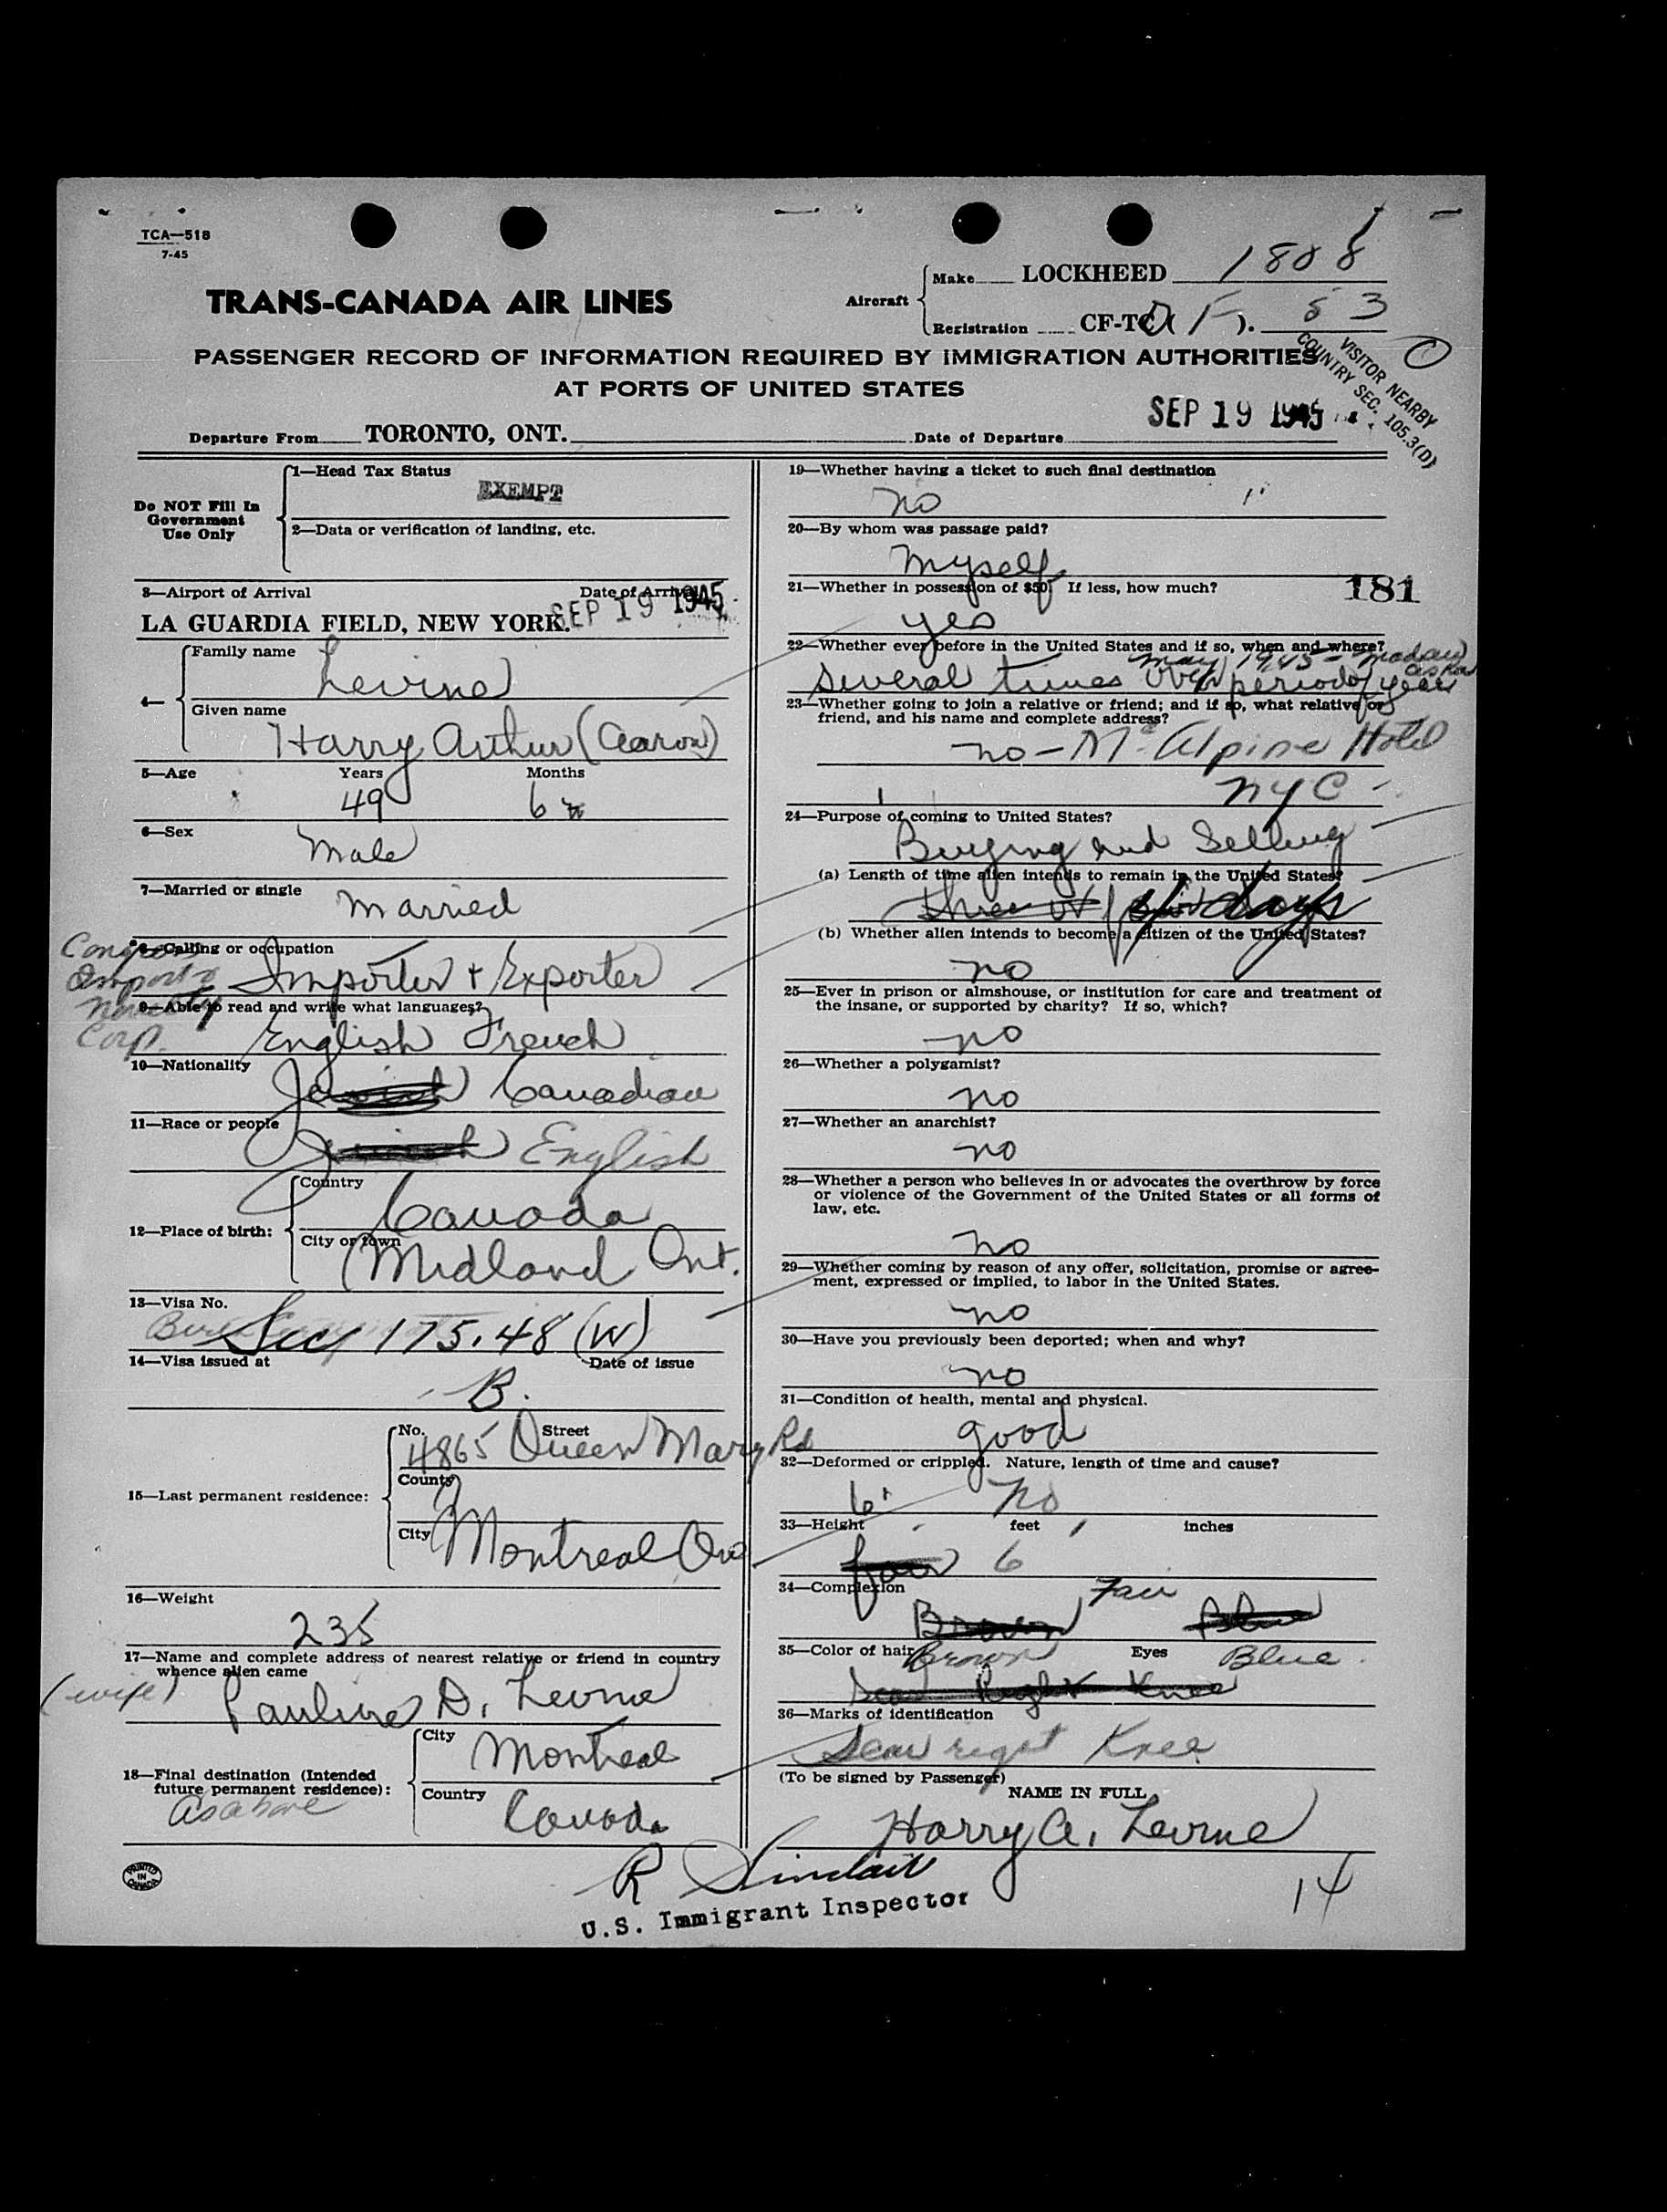 TCA—518
7-45
TRANS-CANADA AIR LINES
Aircraft
Make LOCKHEED 1808
Registration CF-TC( F ). 53
PASSENGER RECORD OF INFORMATION REQUIRED BY IMMIGRATION AUTHORITIES
AT PORTS OF UNITED STATES
VISITOR NEARBY
COUNTRY SEC. 105.3(D)
Departure From TORONTO, ONT. Date of Departure SEP 19 1945
Do NOT Fill In
Government
Use Only
1—Head Tax Status
EXEMPT
2—Data or verification of landing, etc.
3—Airport of Arrival Date of Arrival
LA GUARDIA FIELD, NEW YORK. SEP 19 1945
4—
Family name
Levine
Given name
Harry Arthur (Aaron)
5—Age Years Months
49 6
6—Sex
Male
7—Married or single
Married
8—Calling or occupation
Importer + Exporter
Corp.
9—Able to read and write what languages?
English French
10—Nationality
Jewish Canadian
11—Race or people
Jewish English
12—Place of birth:
Country
Canada
City or town
Midland Ont.
13—Visa No.
Sec 175.48 (W)
14—Visa issued at Date of issue
B.
15—Last permanent residence:
No. Street
4865 Queen Mary Rd
County
City
Montreal Que
16—Weight
235
17—Name and complete address of nearest relative or friend in country
whence alien came
(wife) Pauline D. Levine
18—Final destination (Intended
future permanent residence):
as above
City
Montreal
Country
Canada
PRINTED
IN
CANADA
19—Whether having a ticket to such final destination
no
20—By whom was passage paid?
Myself
21—Whether in possession of $50. If less, how much?
181
yes
22—Whether ever before in the United States and if so, when and where?
May 1945 - Madawaska
Several times over period of years
23—Whether going to join a relative or friend; and if so, what relative or
friend, and his name and complete address?
no - McAlpine Hotel
NYC
24—Purpose of coming to United States?
Buying and Selling
(a) Length of time alien intends to remain in the United States?
three or days
(b) Whether alien intends to become a citizen of the United States?
no
25—Ever in prison or almshouse, or institution for care and treatment of
the insane, or supported by charity? If so, which?
no
26—Whether a polygamist?
no
27—Whether an anarchist?
no
28—Whether a person who believes in or advocates the overthrow by force
or violence of the Government of the United States or all forms of
law, etc.
no
29—Whether coming by reason of any offer, solicitation, promise or agree-
ment, expressed or implied, to labor in the United States.
no
30—Have you previously been deported; when and why?
no
31—Condition of health, mental and physical.
good
32—Deformed or crippled. Nature, length of time and cause?
6' no
33—Height feet inches
fair 6
34—Complexion Fair
Brown Blue
35—Color of hair Brown Eyes Blue
Scar Right Knee
36—Marks of identification
Scar right Knee
(To be signed by Passenger)
NAME IN FULL
Harry A. Levine
R Sinclair
U.S. Immigrant Inspector
14